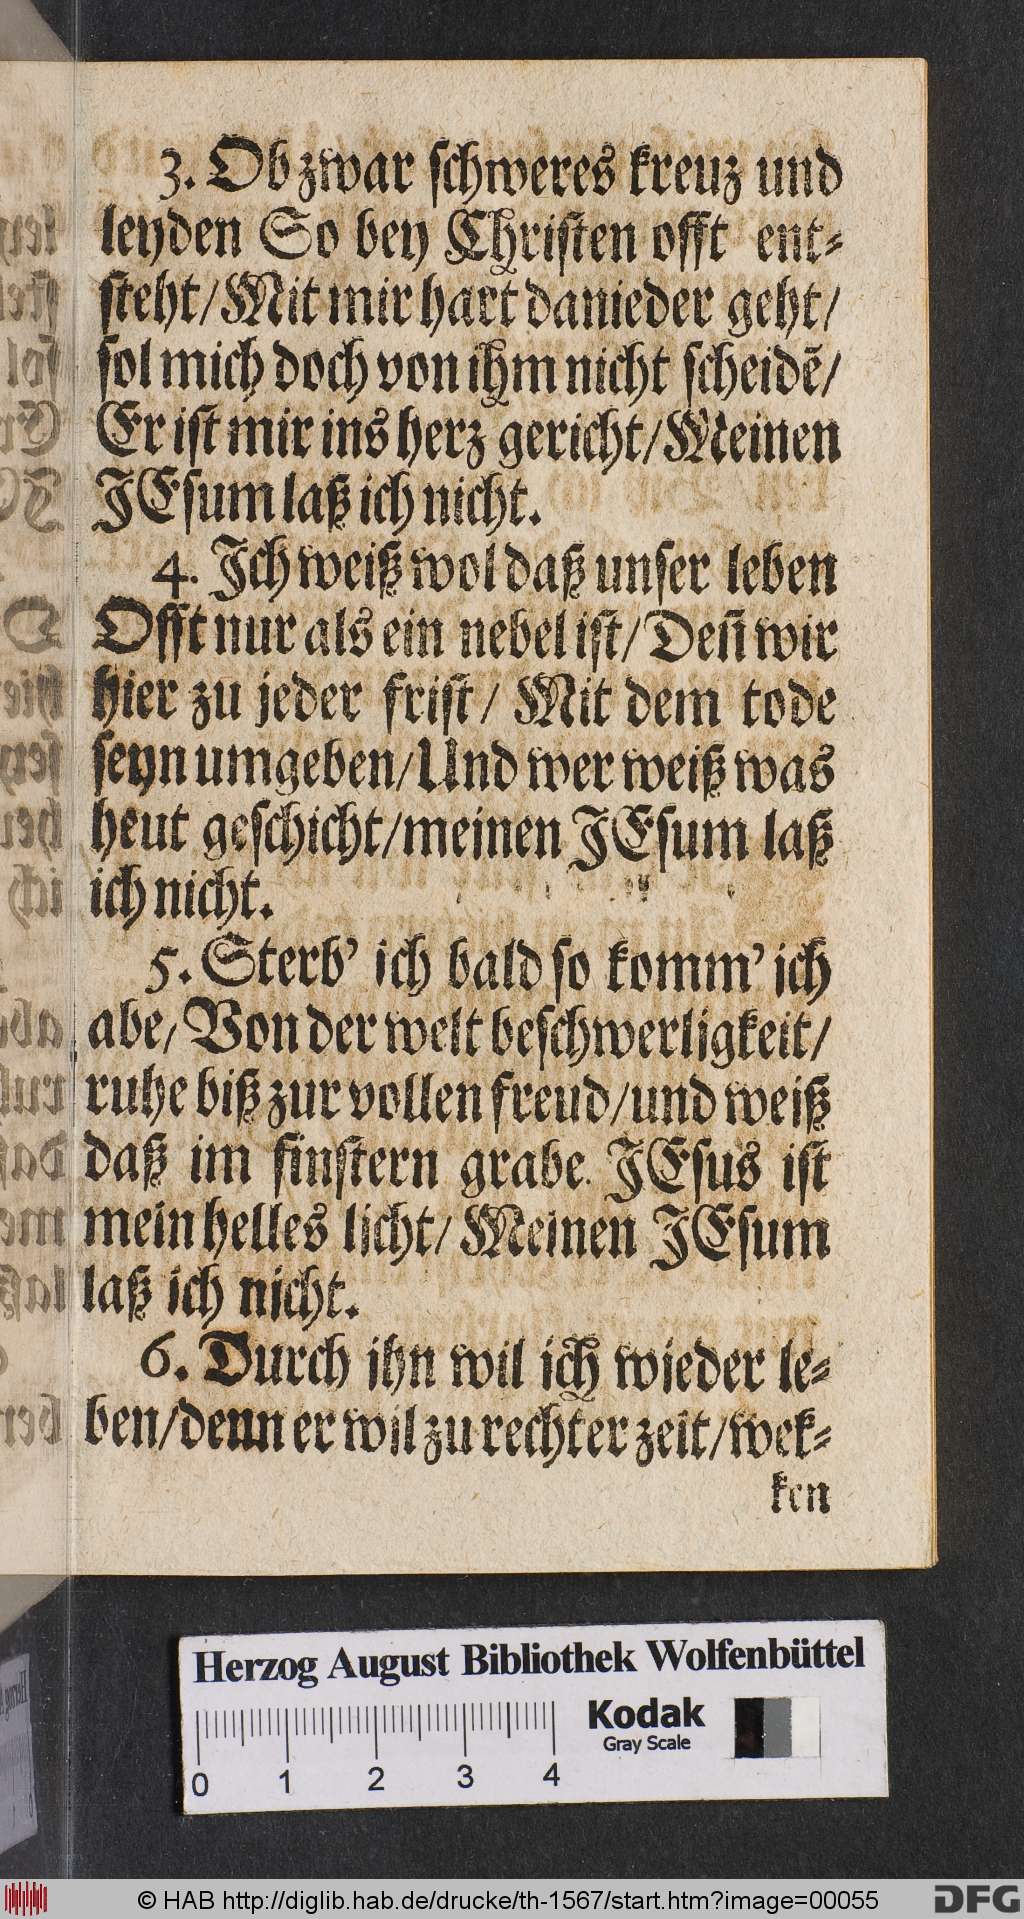 3. Ob zwar schweres kreuz und
leyden So bey Christen offt ent-
steht/ Mit mir hart danieder geht/
sol mich doch von ihm nicht scheidẽ/
Er ist mir ins herz gericht/ Meinen
JEsum laß ich nicht.
4. Ich weiß wol daß unser leben
Offt nur als ein nebel ist/ Deñ wir
hier zu jeder frist/ Mit dem tode
seyn umgeben/ Und wer weiß was
heut geschicht/ meinen JEsum laß
ich nicht.
5. Sterb' ich bald so komm' ich
abe/ Von der welt beschwerligkeit/
ruhe biß zur vollen freud/ und weiß
daß im finstern grabe. JEsus ist
mein helles licht/ Meinen JEsum
laß ich nicht.
6. Durch ihn wil ich wieder le-
ben/ denn er wil zu rechter zeit/ wek-
ken
Herzog August Bibliothek Wolfenbüttel
Kodak
Gray Scale
0 1 2 3 4
© HAB http://diglib.hab.de/drucke/th-1567/start.htm?image=00055
DFG